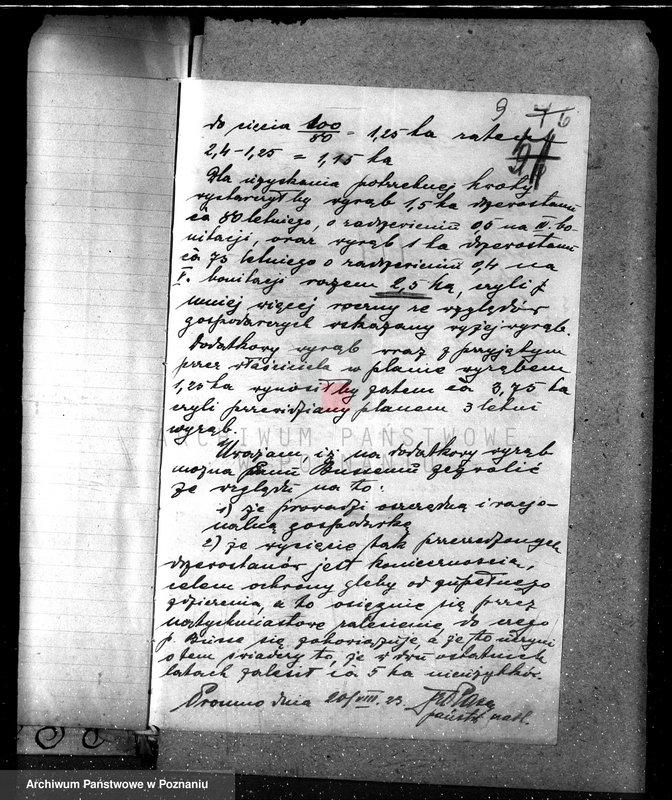 9 76
do cięcia 100/80 = 1,25 ha
2,4 - 1,25 = 1,15 ha
Dla uzyskania potrzebnej kwoty
wystarczyłby wyrąb 1,5 ha drzewostanu
ca 80 letniego, o zadrzewieniu 05 na III. bo-
nitacji, oraz wyrąb 1 ha drzewostanu
ca 75 letniego o zadrzewieniu 04 na
V. bonitacji razem 2,5 ha, czyli
mniej więcej roczny ze względów
gospodarczych wskazany wyżej wyrąb.
Dodatkowy wyrąb wraz z przyjętym
przez właściciela w planie wyrębem
1,25 ha wynosiłby zatem ca 3,75 ha
czyli przewidziany planem 3 letni
wyrąb.
Uważam, iż na dodatkowy wyrąb
można Panu Bussemu zezwolić
ze względu na to:
1) że prowadzi oszczędną i racjo-
nalną gospodarkę
2) że wycięcie tak przerzedzonych
drzewostanów jest koniecznością,
celem ochrony gleby od zupełnego
zdziczenia, a to osiągnie się przez
natychmiastowe zalesienie do czego
p. Busse się zobowiązuje a że to uczyni
o tem świadczy to, że w dwu ostatnich
latach zalesił ca 5 ha nieużytków.
Promno dnia 20/VIII. 23.
państw. nadl.
ARCHIWUM PAŃSTWOWE
W POZNANIU
Archiwum Państwowe w Poznaniu